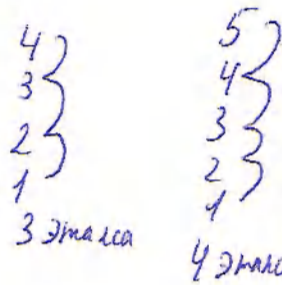 4
3
2
1
3 этажа
5
4
3
2
1
4 этаж